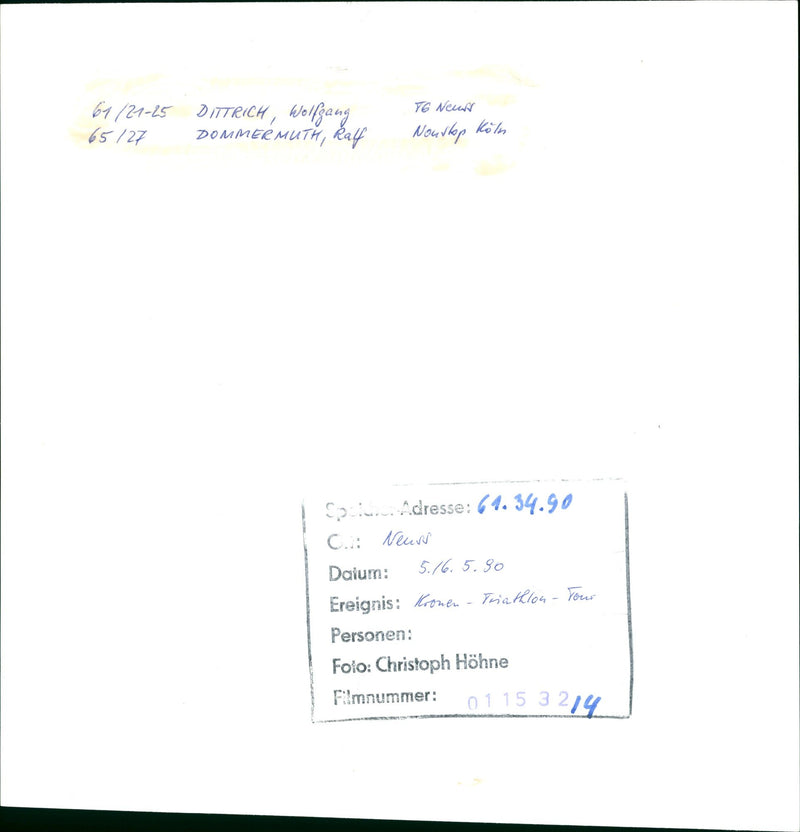 61/21-25 DITTRICH, Wolfgang TG Neuss
65/27 DOMMERMUTH, Ralf Nonstop Köln
Speicher-Adresse: 61.34.90
Ort: Neuss
Datum: 5./6. 5. 90
Ereignis: Kronen - Triathlon - Tour
Personen:
Foto: Christoph Höhne
Filmnummer: 011532/14